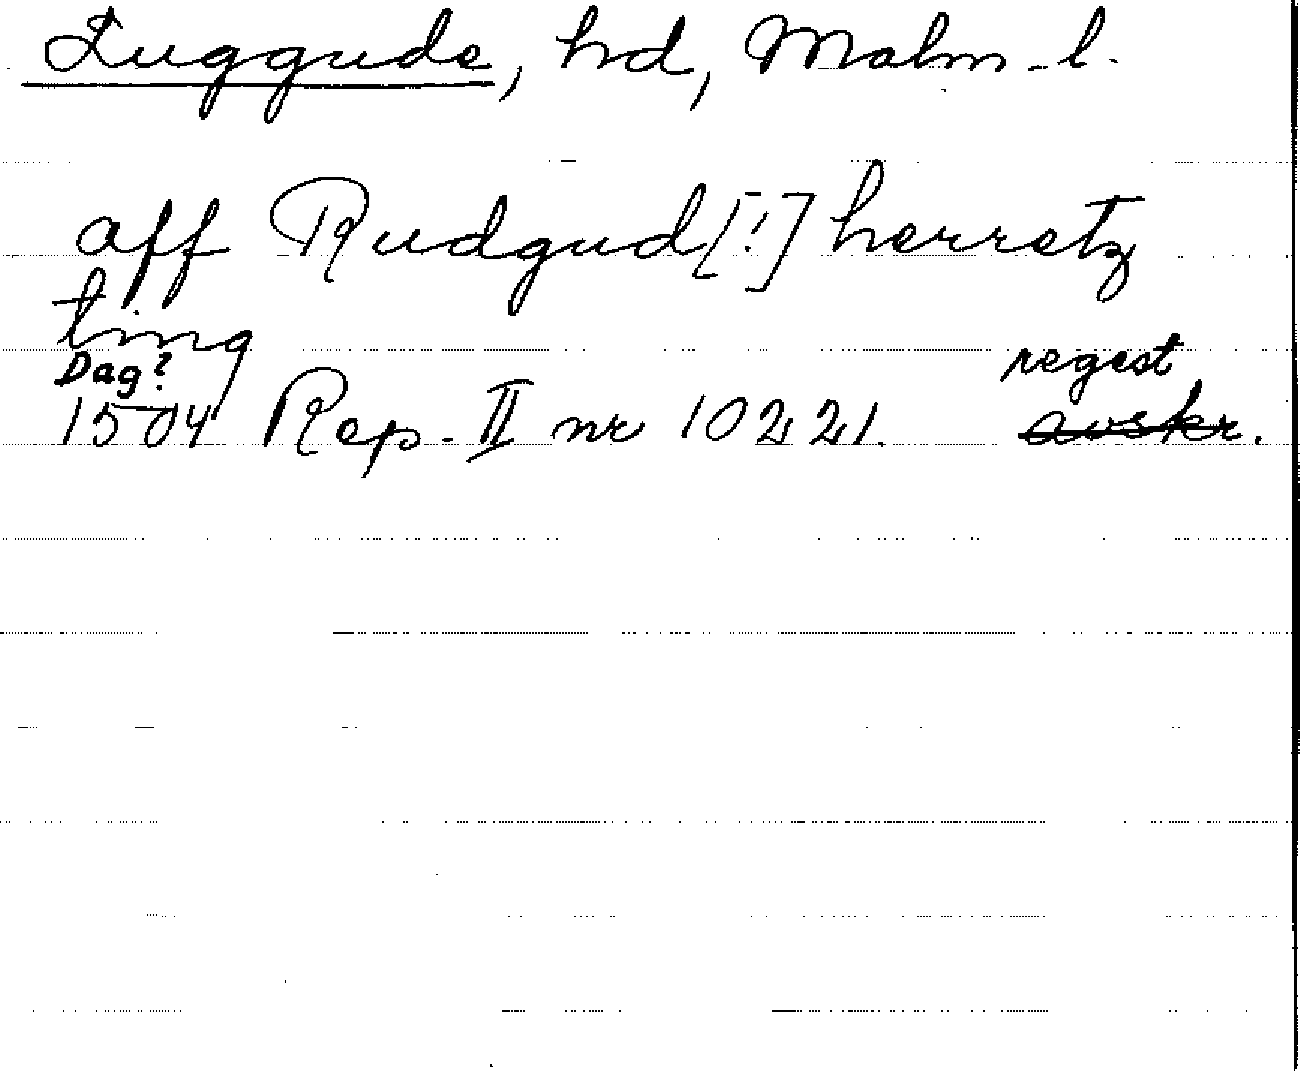 Luggude, hd, Malm-l.
aff Rudgud[!] herretz
ting
Dag?
regest
1504 Rep. II nr 10221. avskr.